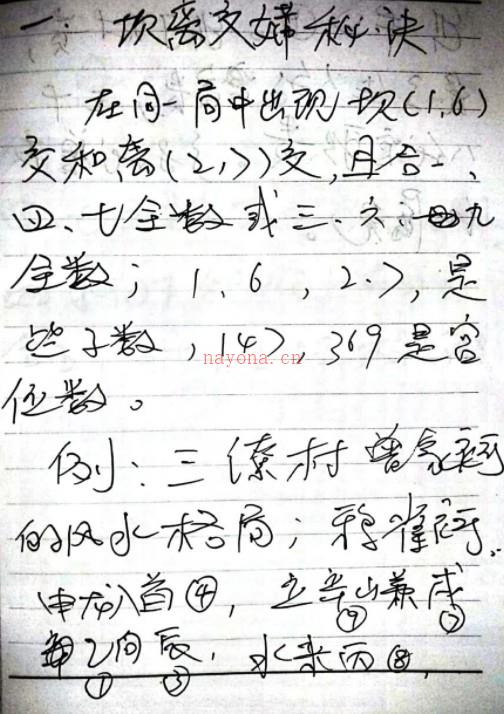 一、坎离交媾秘诀
在同一局中出现坎(1,6)
交和离(2,7)交,且合一、
四、七全数或三、六、九
全数; 1、6,2、7,是
些子数,147,369是宫
位数。
nayona.cn
例:三僚村曾家祠
的风水格局;
申龙入首④,立辛山兼戌
⑨⑦
乙向辰,水来丙⑧,
①③